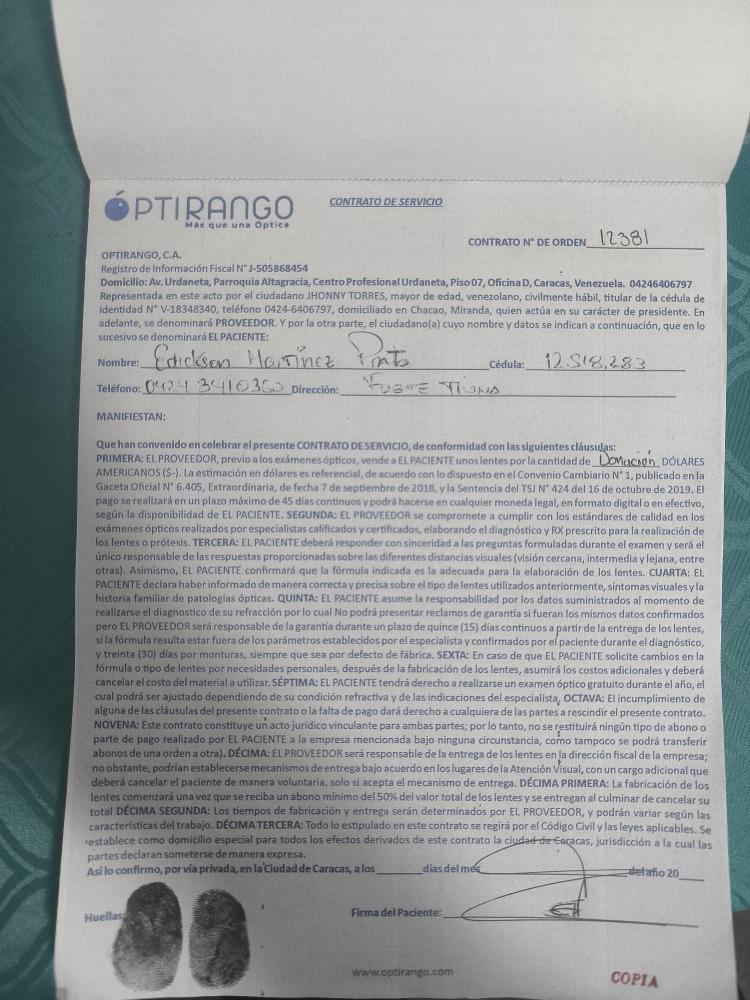 ÓPTIRANGO
Más que una Óptica
CONTRATO DE SERVICIO
CONTRATO N° DE ORDEN 12381
OPTIRANGO, C.A.
Registro de Información Fiscal N° J-505868454
Domicilio: Av. Urdaneta, Parroquia Altagracia, Centro Profesional Urdaneta, Piso 07, Oficina D, Caracas, Venezuela. 04246406797
Representada en este acto por el ciudadano JHONNY TORRES, mayor de edad, venezolano, civilmente hábil, titular de la cédula de
Identidad N° V-18348340, teléfono 0424-6406797, domiciliado en Chacao, Miranda, quien actúa en su carácter de presidente. En
adelante, se denominará PROVEEDOR. Y por la otra parte, el ciudadano(a) cuyo nombre y datos se indican a continuación, que en lo
sucesivo se denominará EL PACIENTE:
Nombre: Edickson Martínez Pinto Cédula: 12.518,283
Teléfono: 0424 3410360 Dirección: Fuerte Tiuna
MANIFIESTAN:
Que han convenido en celebrar el presente CONTRATO DE SERVICIO, de conformidad con las siguientes cláusulas:
PRIMERA: EL PROVEEDOR, previo a los exámenes ópticos, vende a EL PACIENTE unos lentes por la cantidad de Donación DÓLARES
AMERICANOS ($-). La estimación en dólares es referencial, de acuerdo con lo dispuesto en el Convenio Cambiario N° 1, publicado en la
Gaceta Oficial N° 6.405, Extraordinaria, de fecha 7 de septiembre de 2018, y la Sentencia del TSJ N° 424 del 16 de octubre de 2019. El
pago se realizará en un plazo máximo de 45 días continuos y podrá hacerse en cualquier moneda legal, en formato digital o en efectivo,
según la disponibilidad de EL PACIENTE. SEGUNDA: EL PROVEEDOR se compromete a cumplir con los estándares de calidad en los
exámenes ópticos realizados por especialistas calificados y certificados, elaborando el diagnóstico y RX prescrito para la realización de
los lentes o prótesis. TERCERA: EL PACIENTE deberá responder con sinceridad a las preguntas formuladas durante el examen y será el
único responsable de las respuestas proporcionadas sobre las diferentes distancias visuales (visión cercana, intermedia y lejana, entre
otras). Asimismo, EL PACIENTE confirmará que la fórmula indicada es la adecuada para la elaboración de los lentes. CUARTA: EL
PACIENTE declara haber informado de manera correcta y precisa sobre el tipo de lentes utilizados anteriormente, síntomas visuales y la
historia familiar de patologías ópticas. QUINTA: EL PACIENTE asume la responsabilidad por los datos suministrados al momento de
realizarse el diagnostico de su refracción por lo cual No podrá presentar reclamos de garantía si fueran los mismos datos confirmados
pero EL PROVEEDOR será responsable de la garantía durante un plazo de quince (15) días continuos a partir de la entrega de los lentes,
si la fórmula resulta estar fuera de los parámetros establecidos por el especialista y confirmados por el paciente durante el diagnóstico,
y treinta (30) días por monturas, siempre que sea por defecto de fábrica. SEXTA: En caso de que EL PACIENTE solicite cambios en la
fórmula o tipo de lentes por necesidades personales, después de la fabricación de los lentes, asumirá los costos adicionales y deberá
cancelar el costo del material a utilizar. SÉPTIMA: EL PACIENTE tendrá derecho a realizarse un examen óptico gratuito durante el año, el
cual podrá ser ajustado dependiendo de su condición refractiva y de las indicaciones del especialista, OCTAVA: El incumplimiento de
alguna de las cláusulas del presente contrato o la falta de pago dará derecho a cualquiera de las partes a rescindir el presente contrato.
NOVENA: Este contrato constituye un acto jurídico vinculante para ambas partes; por lo tanto, no se restituirá ningún tipo de abono o
parte de pago realizado por EL PACIENTE a la empresa mencionada bajo ninguna circunstancia, como tampoco se podrá transferir
abonos de una orden a otra). DÉCIMA: EL PROVEEDOR será responsable de la entrega de los lentes en la dirección fiscal de la empresa;
no obstante, podrían establecerse mecanismos de entrega bajo acuerdo en los lugares de la Atención Visual, con un cargo adicional que
deberá cancelar el paciente de manera voluntaria, solo si acepta el mecanismo de entrega. DÉCIMA PRIMERA: La fabricación de los
lentes comenzará una vez que se reciba un abono mínimo del 50% del valor total de los lentes y se entregan al culminar de cancelar su
total DÉCIMA SEGUNDA: Los tiempos de fabricación y entrega serán determinados por EL PROVEEDOR, y podrán variar según las
características del trabajo. DÉCIMA TERCERA: Todo lo estipulado en este contrato se regirá por el Código Civil y las leyes aplicables. Se
establece como domicilio especial para todos los efectos derivados de este contrato la ciudad de Caracas, jurisdicción a la cual las
partes declaran someterse de manera expresa.
Así lo confirmo, por vía privada, en la Ciudad de Caracas, a los ______ días del mes ______ del año 20___
Huellas:
Firma del Paciente:
www.optirango.com
COPIA